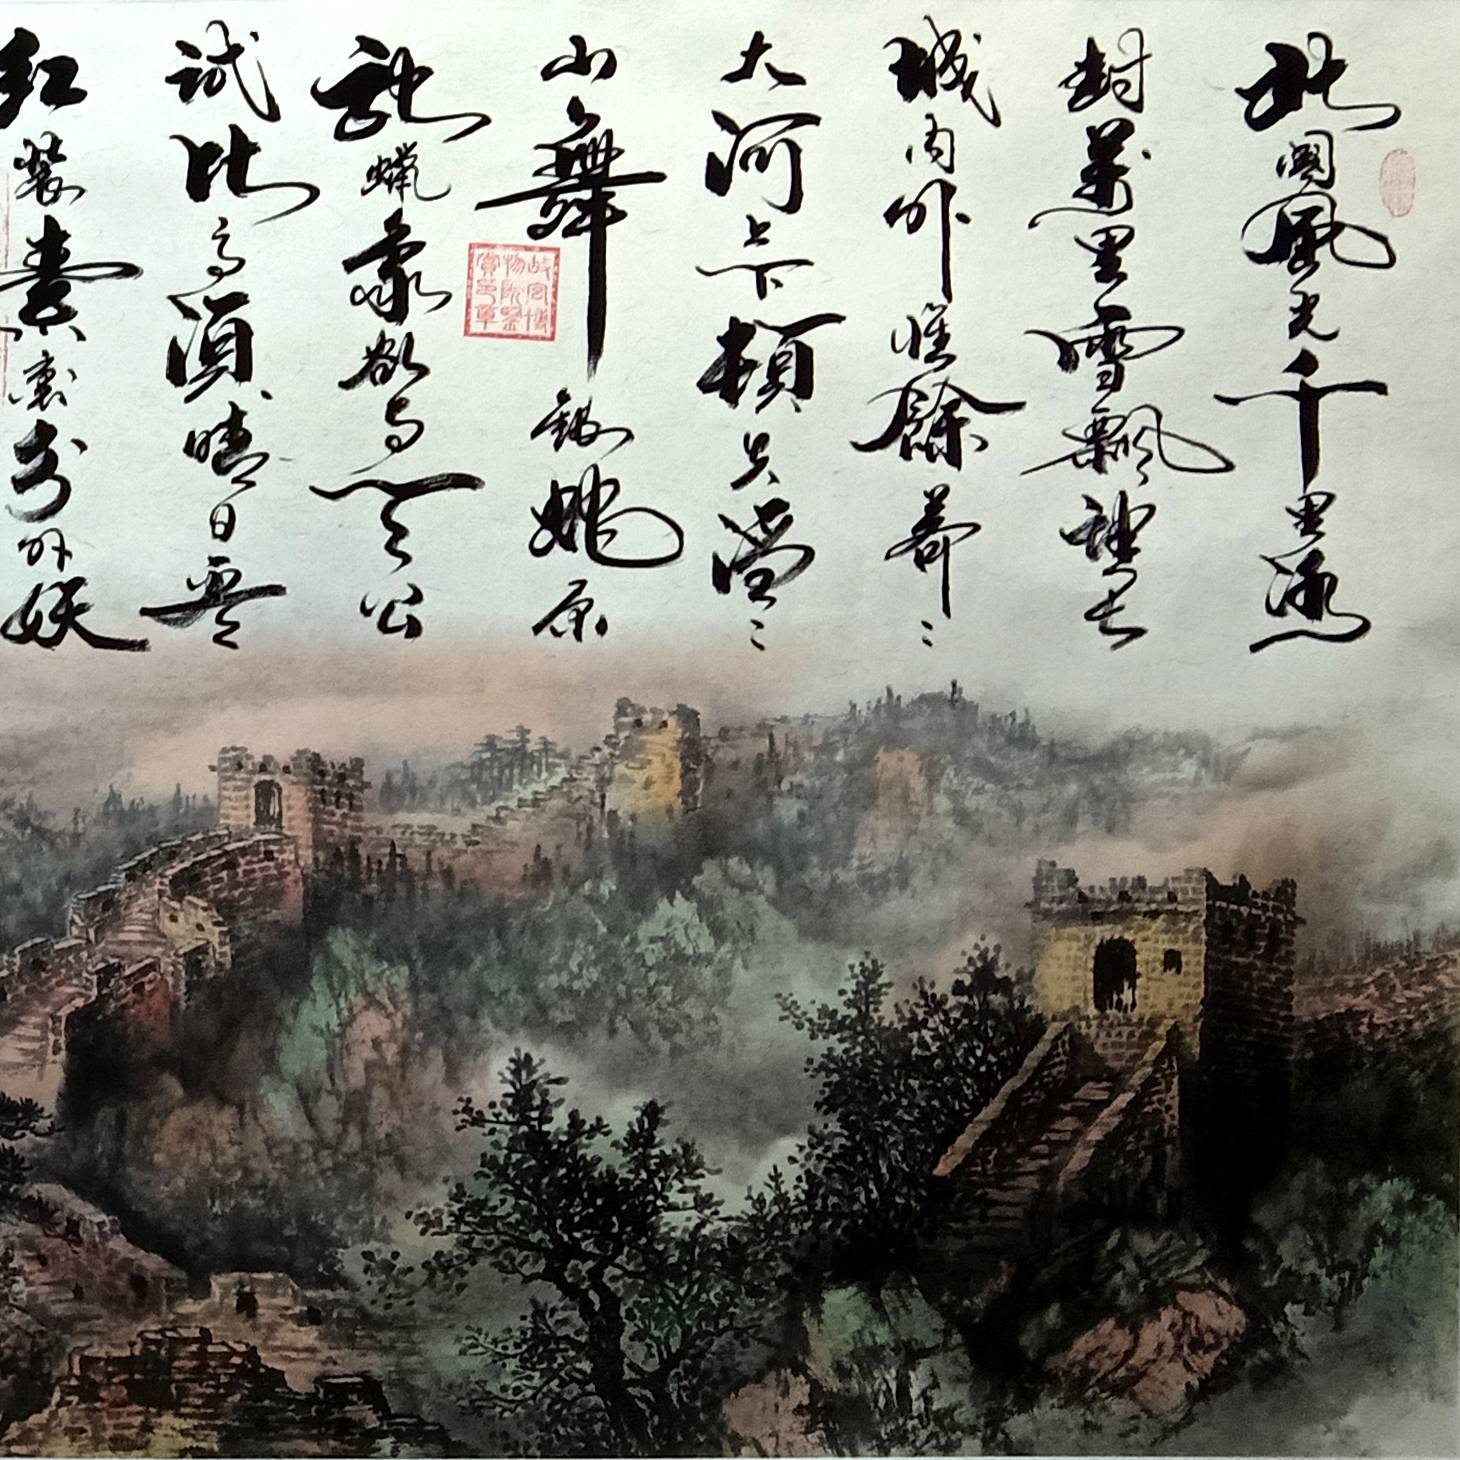 北國風光千里冰
封萬里雪飄望長
城内外惟餘莽〻
大河上下頓失滔〻
山舞銀蛇原
馳蠟象欲與天公
試比高須晴日看
紅裝素裹分外妖
故宮博
物院鑒
賞章